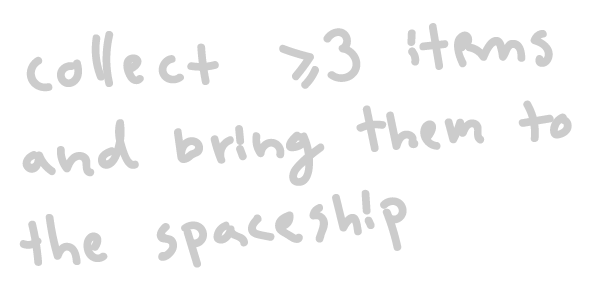 collect ⩾3 items
and bring them to
the spaceship